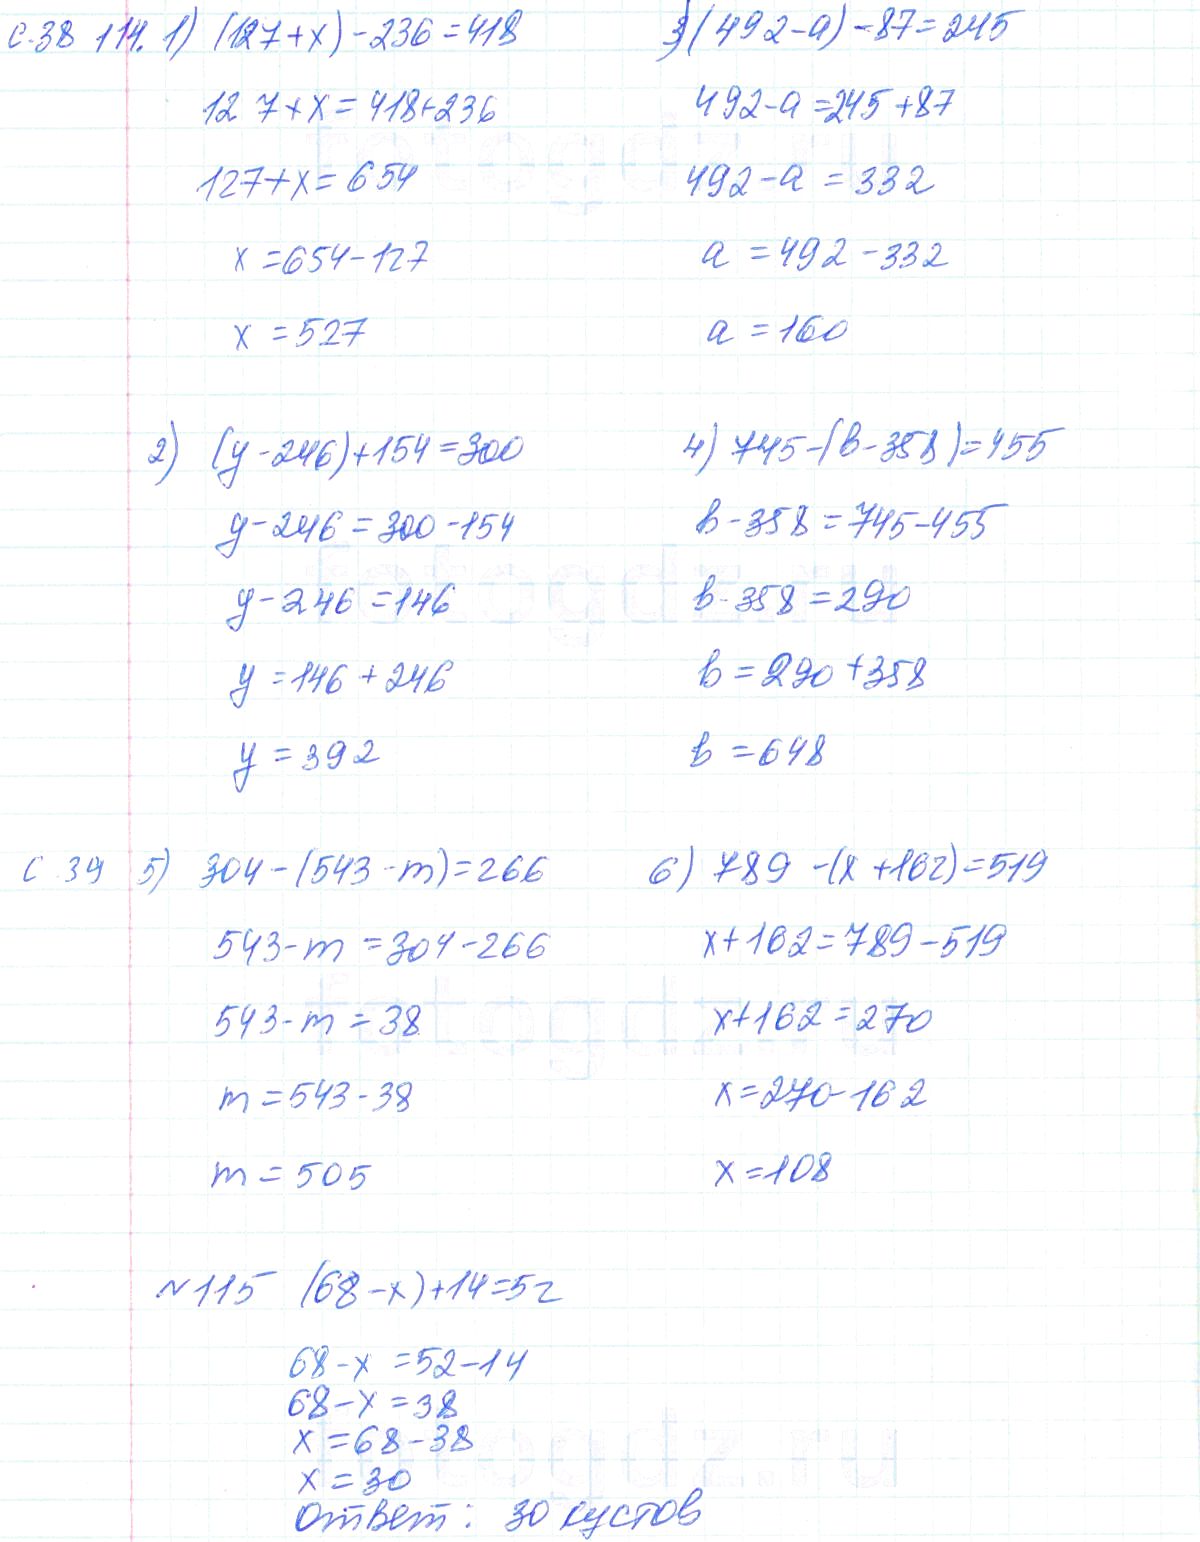 с.38 114. 1) (127+x)-236=418
127+x=418+236
127+x=654
x=654-127
x=527
3) (492-a)-87=245
492-a=245+87
492-a=332
a=492-332
a=160
2) (y-246)+154=300
y-246=300-154
y-246=146
y=146+246
y=392
4) 745-(b-358)=455
b-358=745-455
b-358=290
b=290+358
b=648
с 39 5) 304-(543-m)=266
543-m=304-266
543-m=38
m=543-38
m=505
6) 789-(x+162)=519
x+162=789-519
x+162=270
x=270-162
x=108
№115 (68-x)+14=52
68-x=52-14
68-x=38
x=68-38
x=30
Ответ: 30 кустов
fotogdz.ru
fotogdz.ru
fotogdz.ru
fotogdz.ru